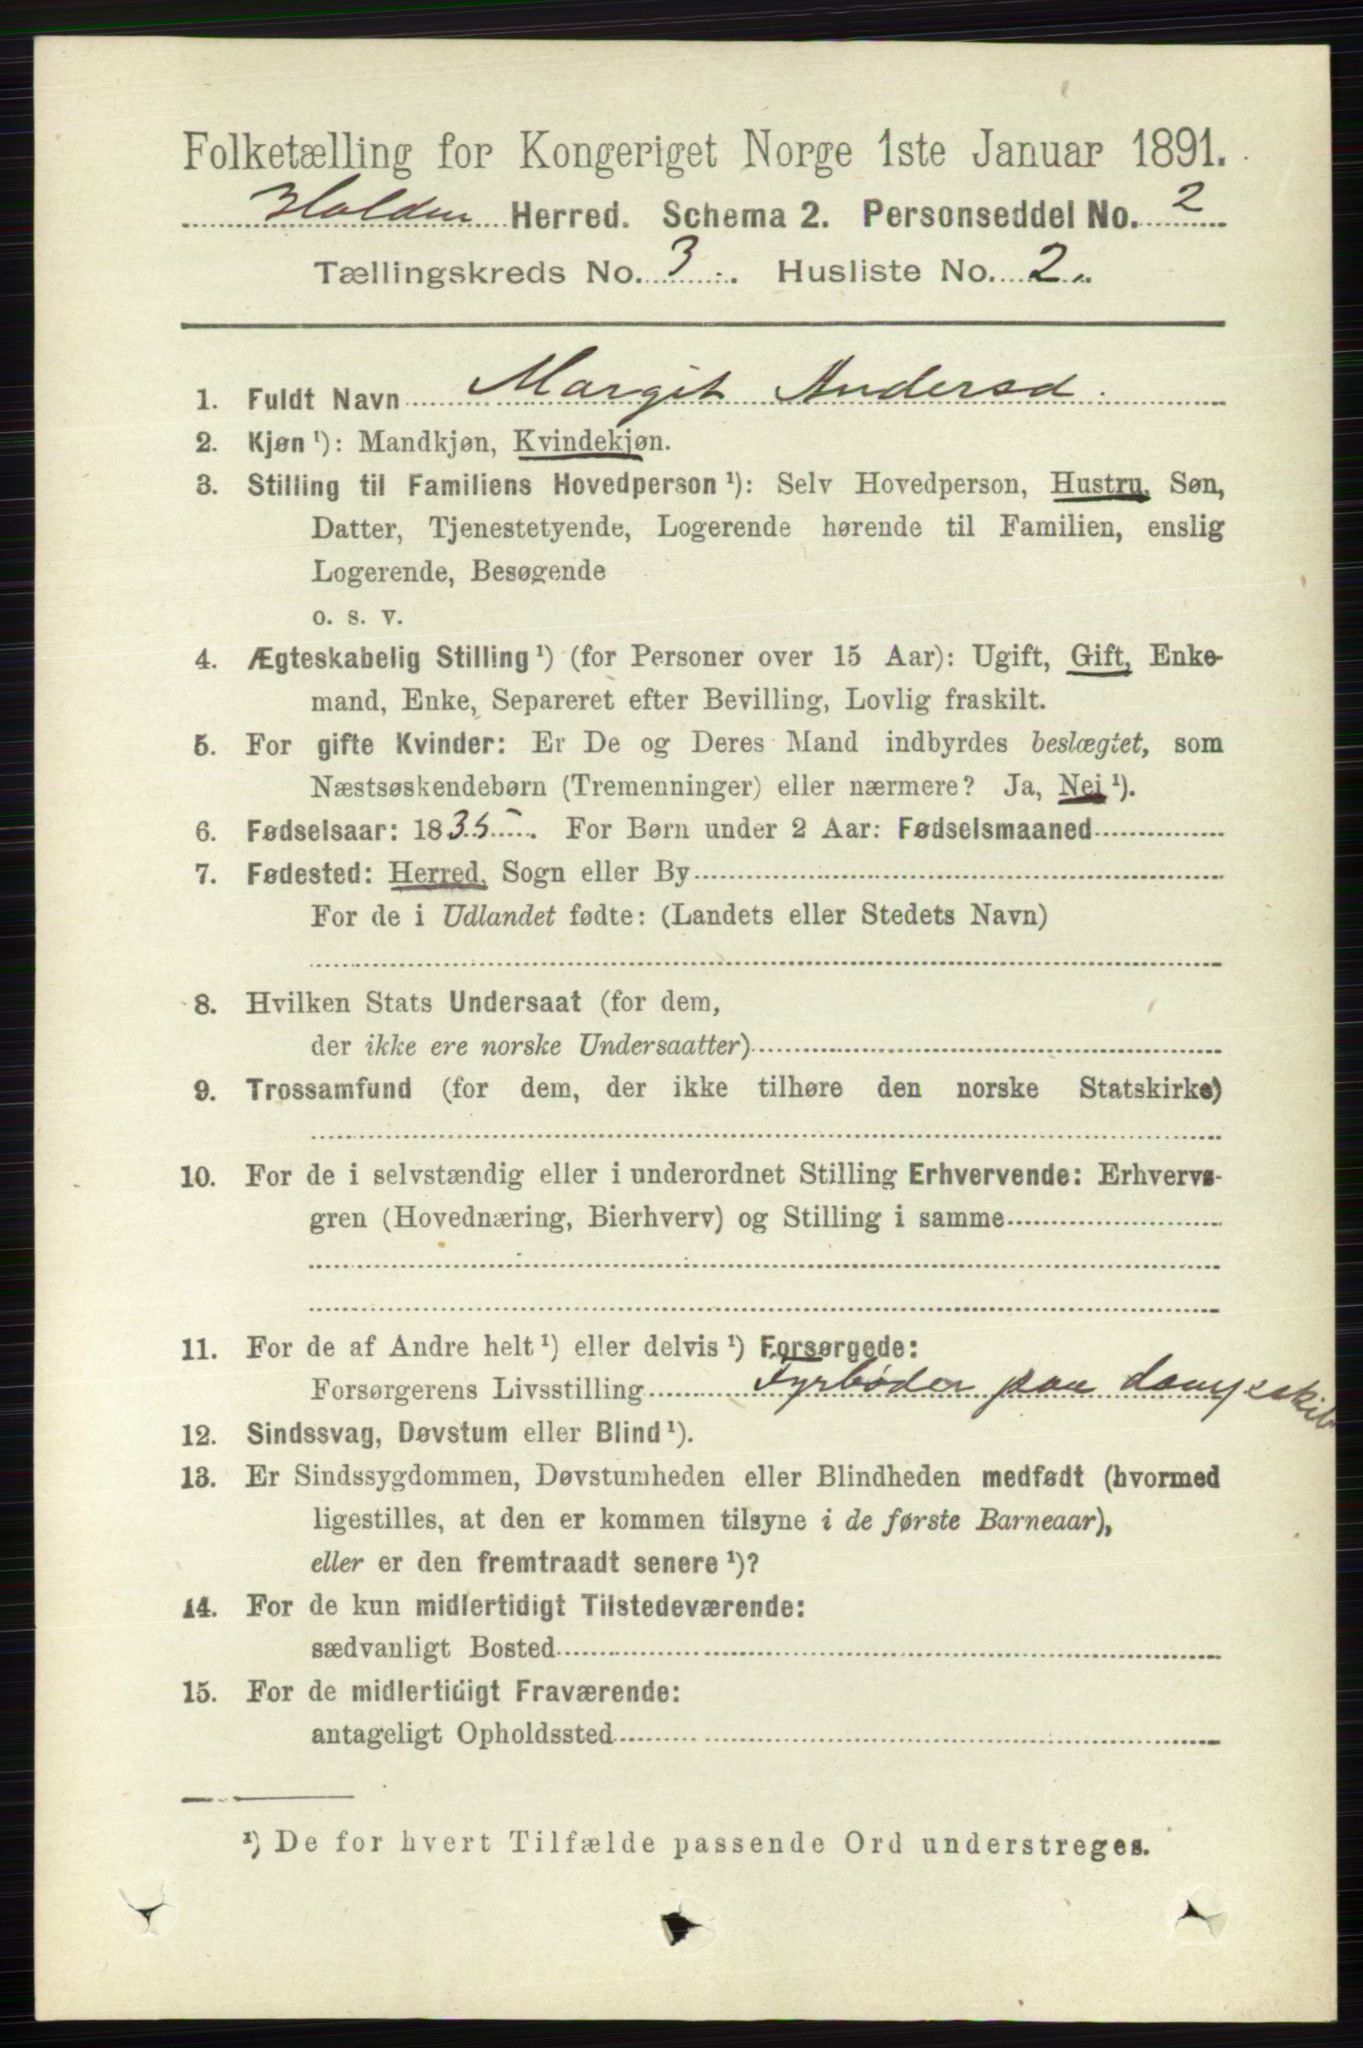 Folketælling for Kongeriget Norge 1ste Januar 1891.
Holden Herred. Schema 2. Personseddel No. 2
Tællingskreds No. 3. Husliste No. 2.
1. Fuldt Navn Margit Andersd.
2. Kjøn ¹): Mandkjøn, Kvindekjøn.
3. Stilling til Familiens Hovedperson ¹): Selv Hovedperson, Hustru, Søn,
Datter, Tjenestetyende, Logerende hørende til Familien, enslig
Logerende, Besøgende
o. s. v.
4. Ægteskabelig Stilling ¹) (for Personer over 15 Aar): Ugift, Gift, Enke-
mand, Enke, Separeret efter Bevilling, Lovlig fraskilt.
5. For gifte Kvinder: Er De og Deres Mand indbyrdes beslægtet, som
Næstsøskendebørn (Tremenninger) eller nærmere? Ja, Nei ¹).
6. Fødselsaar: 1835. For Børn under 2 Aar: Fødselsmaaned
7. Fødested: Herred, Sogn eller By
For de i Udlandet fødte: (Landets eller Stedets Navn)
8. Hvilken Stats Undersaat (for dem,
der ikke ere norske Undersaatter)
9. Trossamfund (for dem, der ikke tilhøre den norske Statskirke)
10. For de i selvstændig eller i underordnet Stilling Erhvervende: Erhvervs-
gren (Hovednæring, Bierhverv) og Stilling i samme
11. For de af Andre helt ¹) eller delvis ¹) Forsørgede:
Forsørgerens Livsstilling Fyrbøder paa dampskib
12. Sindssvag, Døvstum eller Blind ¹).
13. Er Sindssygdommen, Døvstumheden eller Blindheden medfødt (hvormed
ligestilles, at den er kommen tilsyne i de første Barneaar),
eller er den fremtraadt senere ¹)?
14. For de kun midlertidigt Tilstedeværende:
sædvanligt Bosted
15. For de midlertidigt Fraværende:
antageligt Opholdssted
¹) De for hvert Tilfælde passende Ord understreges.